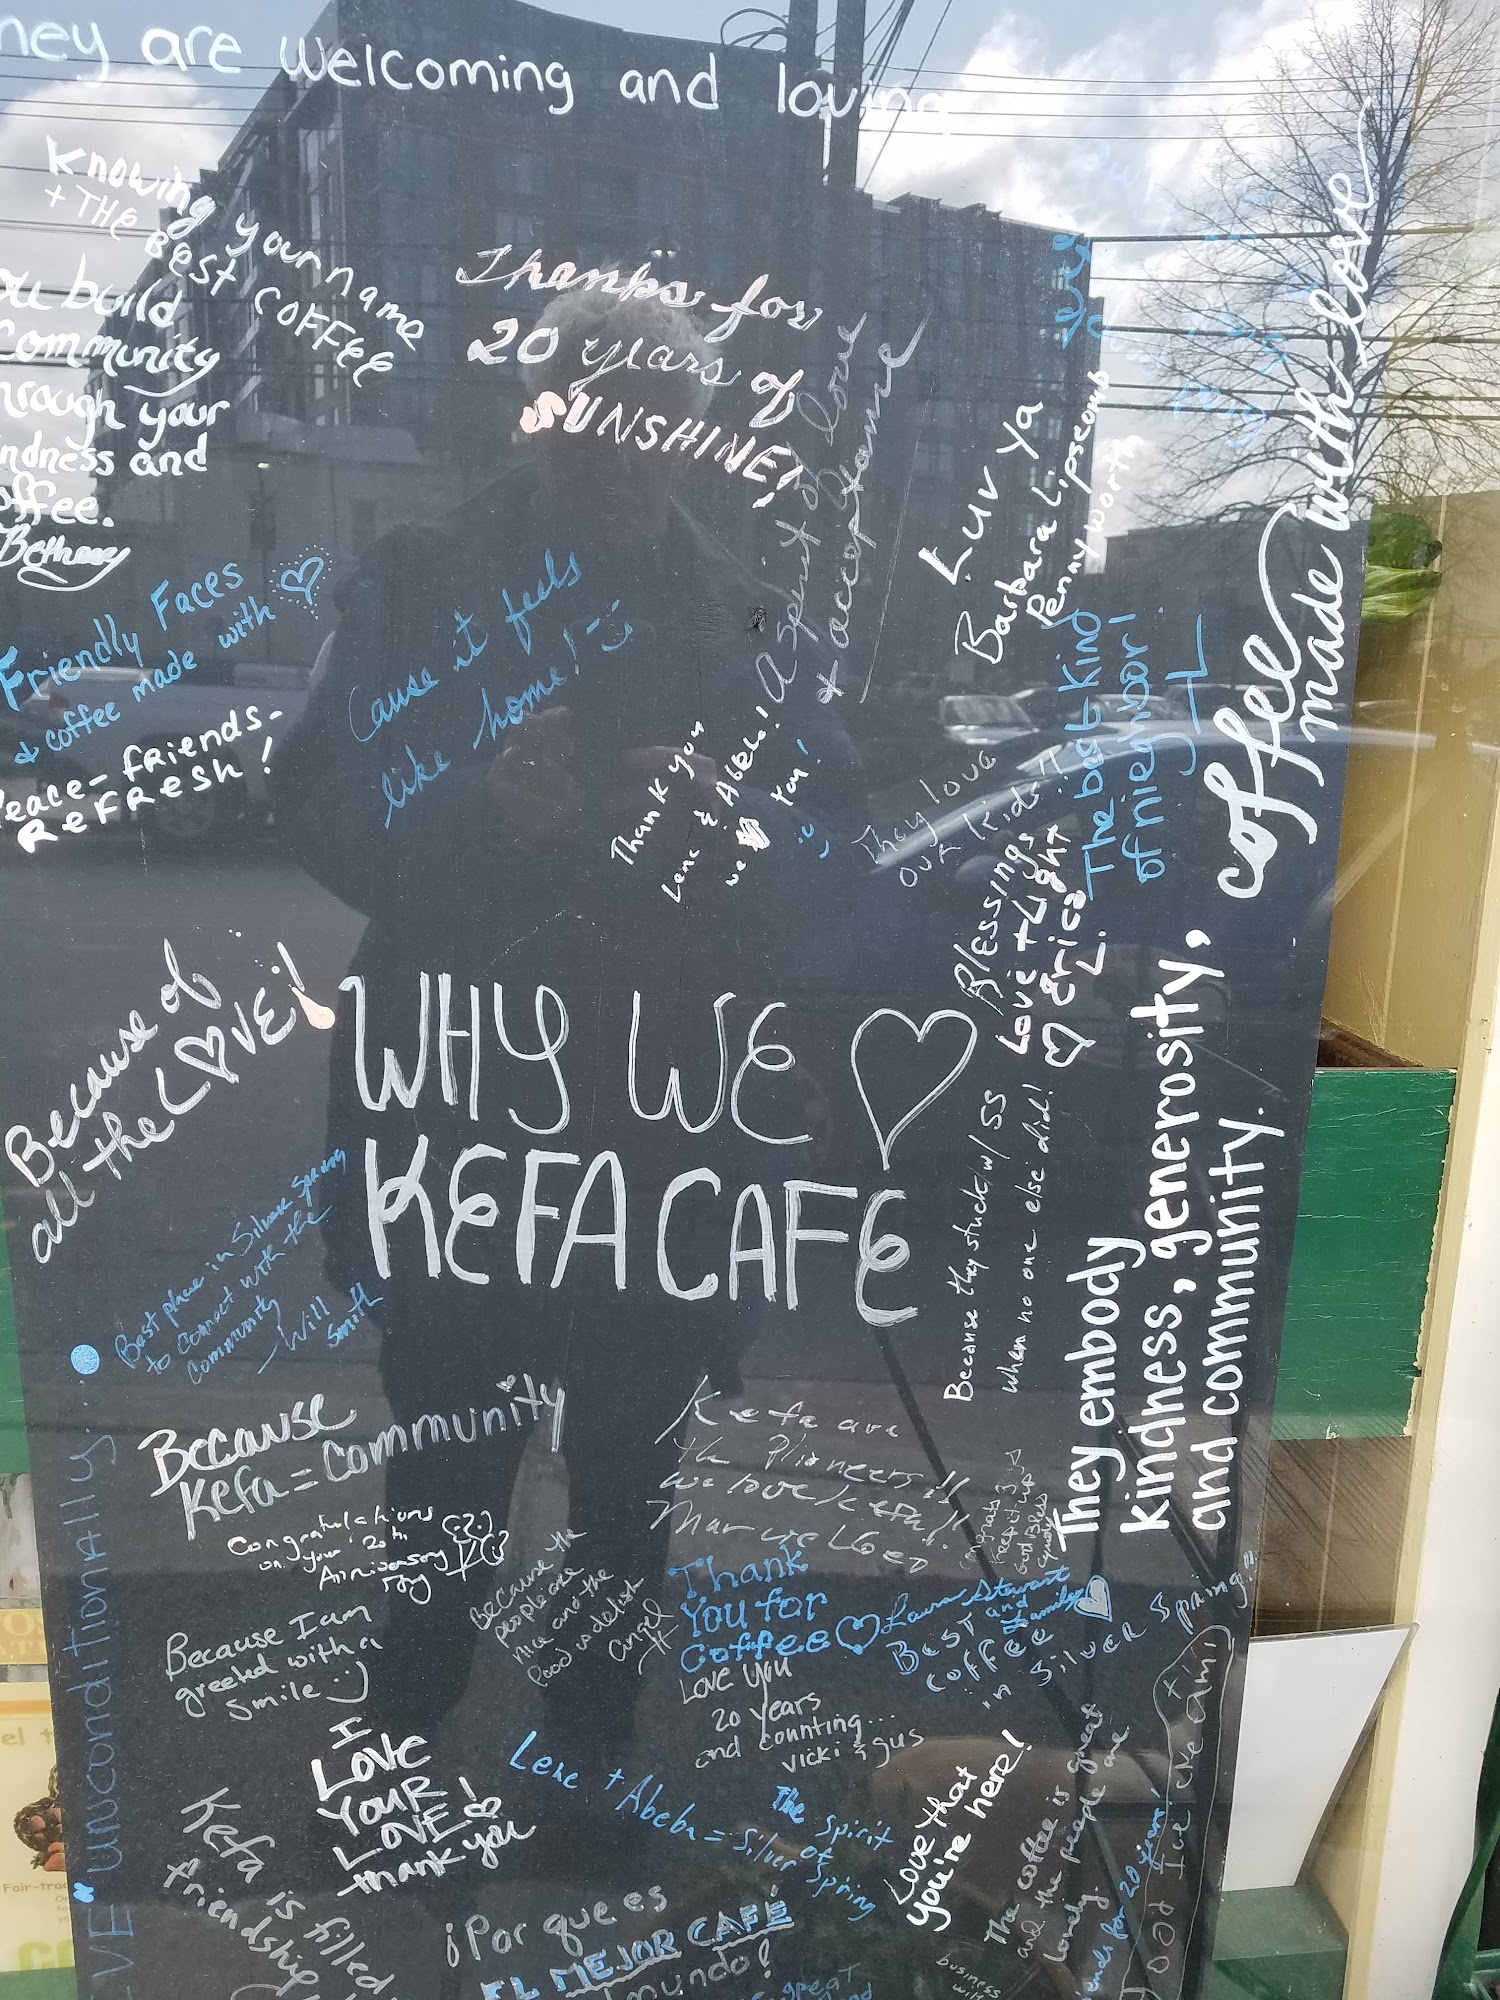 are welcoming and loving
Knowing your name
+ THE BEST COFFEE
build
community
your
and
Bethany
Thanks for
20 years of
SUNSHINE!
A spirit of love
+ acceptance
Luv Ya
Barbara Lipscomb
Pennyworth
coffee
made with love
Friendly Faces
& coffee made with ♡
Cause it feels
like home! :)
friends-
ReFResh!
Thank you
Lene & Abeba!
we
They love
our kids!
The best kind
of nieghbor!
Blessings
Love + Light
♡ Erica
L.
Because of
all the LOVE!
WHY WE ♡
KEFA CAFE
Because they stuck w/ SS
when no one else did!
They embody
kindness, generosity,
and community.
Best place in Silver Spring
to connect with the
community
— Will
Smith
Because
Kefa = community
Kefa are
the Pioneers!!
we love Kefa!!
Congratulations
on your 20th
Anniversary
Because the
people are
nice and the
food is delish
Angel
Thank
You for
Coffee ♡
Laura Stewart
and
family ♡
Best
coffee
in Silver Spring!!
Because I am
greeted with a
smile :)
Love you
20 years
and counting...
Vicki & Gus
I
Love
Your
Love! ♡
thank you
Lene + Abeba =
The Spirit
of
Silver Spring
Love that
you're here!
The coffee is great
and the people are
lovely.
for 20 years!
unconditionally.
Kefa is filled
friendship
¡Por que es
EL MEJOR CAFÉ
mundo!
great
business